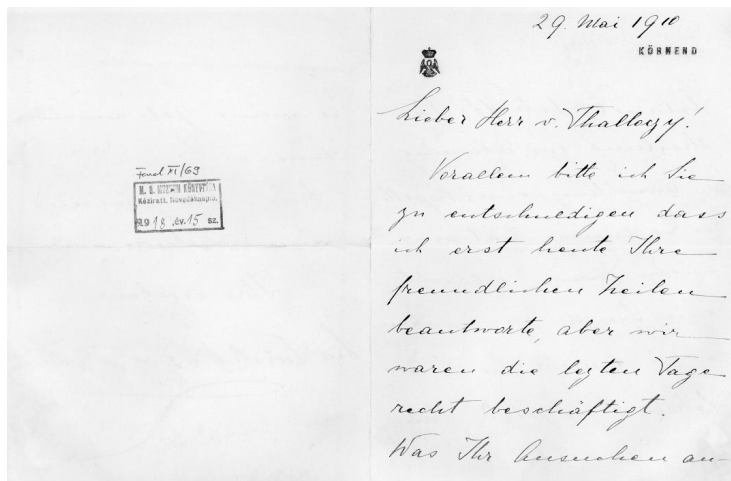 Fond XI/69
M. N. MUZEUM KÖNYVTÁRA
Kézirati Növedéknapló.
1918 év. 15 sz.
29. Mai 1910
KÖRMEND
Lieber Herr v. Thallóczy!
Vorallem bitte ich Sie
zu entschuldigen dass
ich erst heute Ihre
freundlichen Zeilen
beantworte, aber wir
waren die lezten Tage
recht beschäftigt.
Was Ihr Ansuchen an-